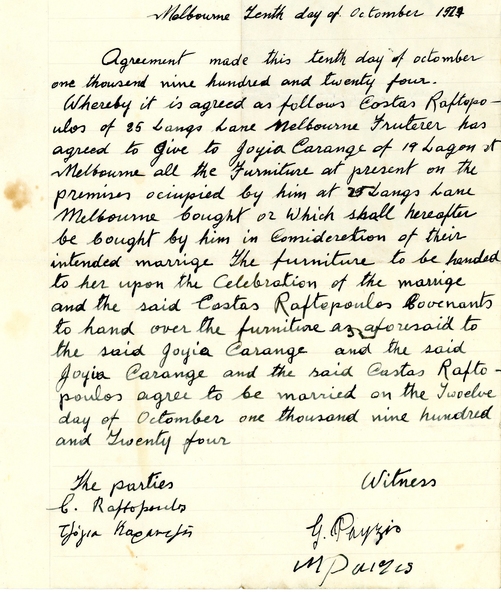 Melbourne Tenth day of Octomber 1924
Agreement made this tenth day of octomber
one thousand nine hundred and twenty four.
Whereby it is agreed as follows Costas Raftopo-
ulos of 25 Langs Lane Melbourne Fruterer has
agreed to Give to Joyia Carange of 19 Lagon st
Melbourne all the Furniture at present on the
premises ociupied by him at 25 Langs Lane
Melbourne bought or Which shall hereafter
be bought by him in Consideretion of their
intended marrige The furniture to be handed
to her upon the Celebration of the marrige
and the said Costas Raftopoulos Covenants
to hand over the furniture as aforesaid to
the said Joyia Carange and the said
Joyia Carange and the said Costas Rafto-
poulos agree to be married on the Twoelve
day of Octomber one thousand nine hundred
and Twenty four
The parties
C. Raftopoulos
Witness
G. Payzis
M